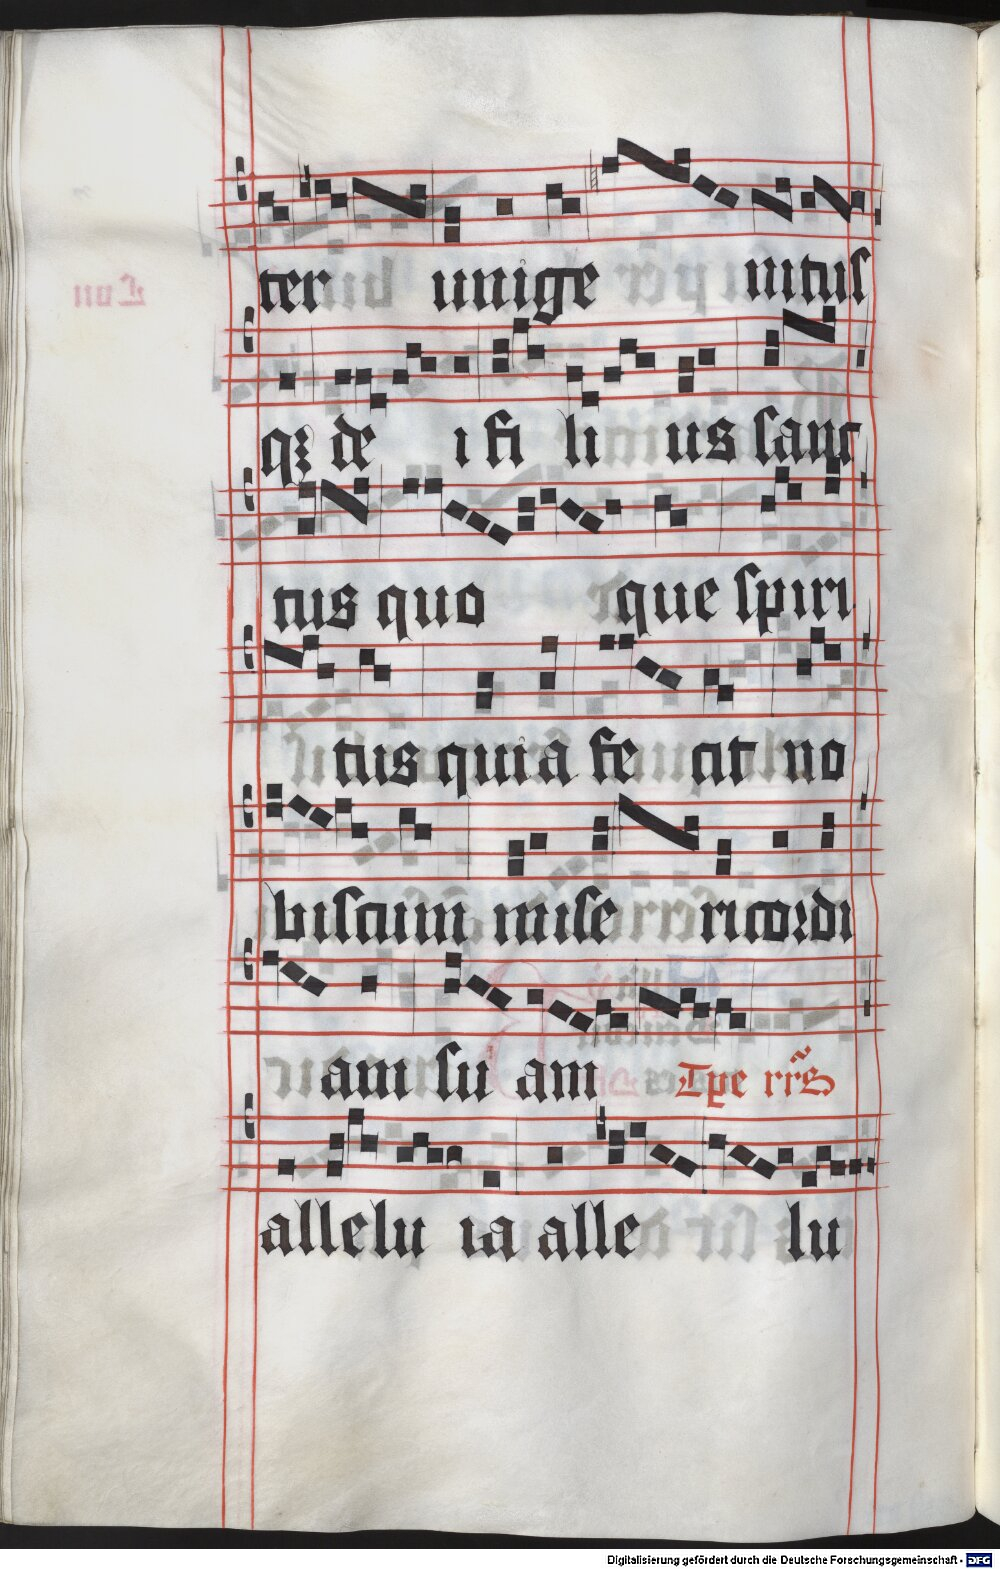 ter unige nitus
qꝫ de i fi li us sanc
tus quo que spiri
tus quia fe cit no
biscum mise ricordi
am su am Tpe rr̃s
allelu ia alle lu
Digitalisierung gefördert durch die Deutsche Forschungsgemeinschaft - DFG